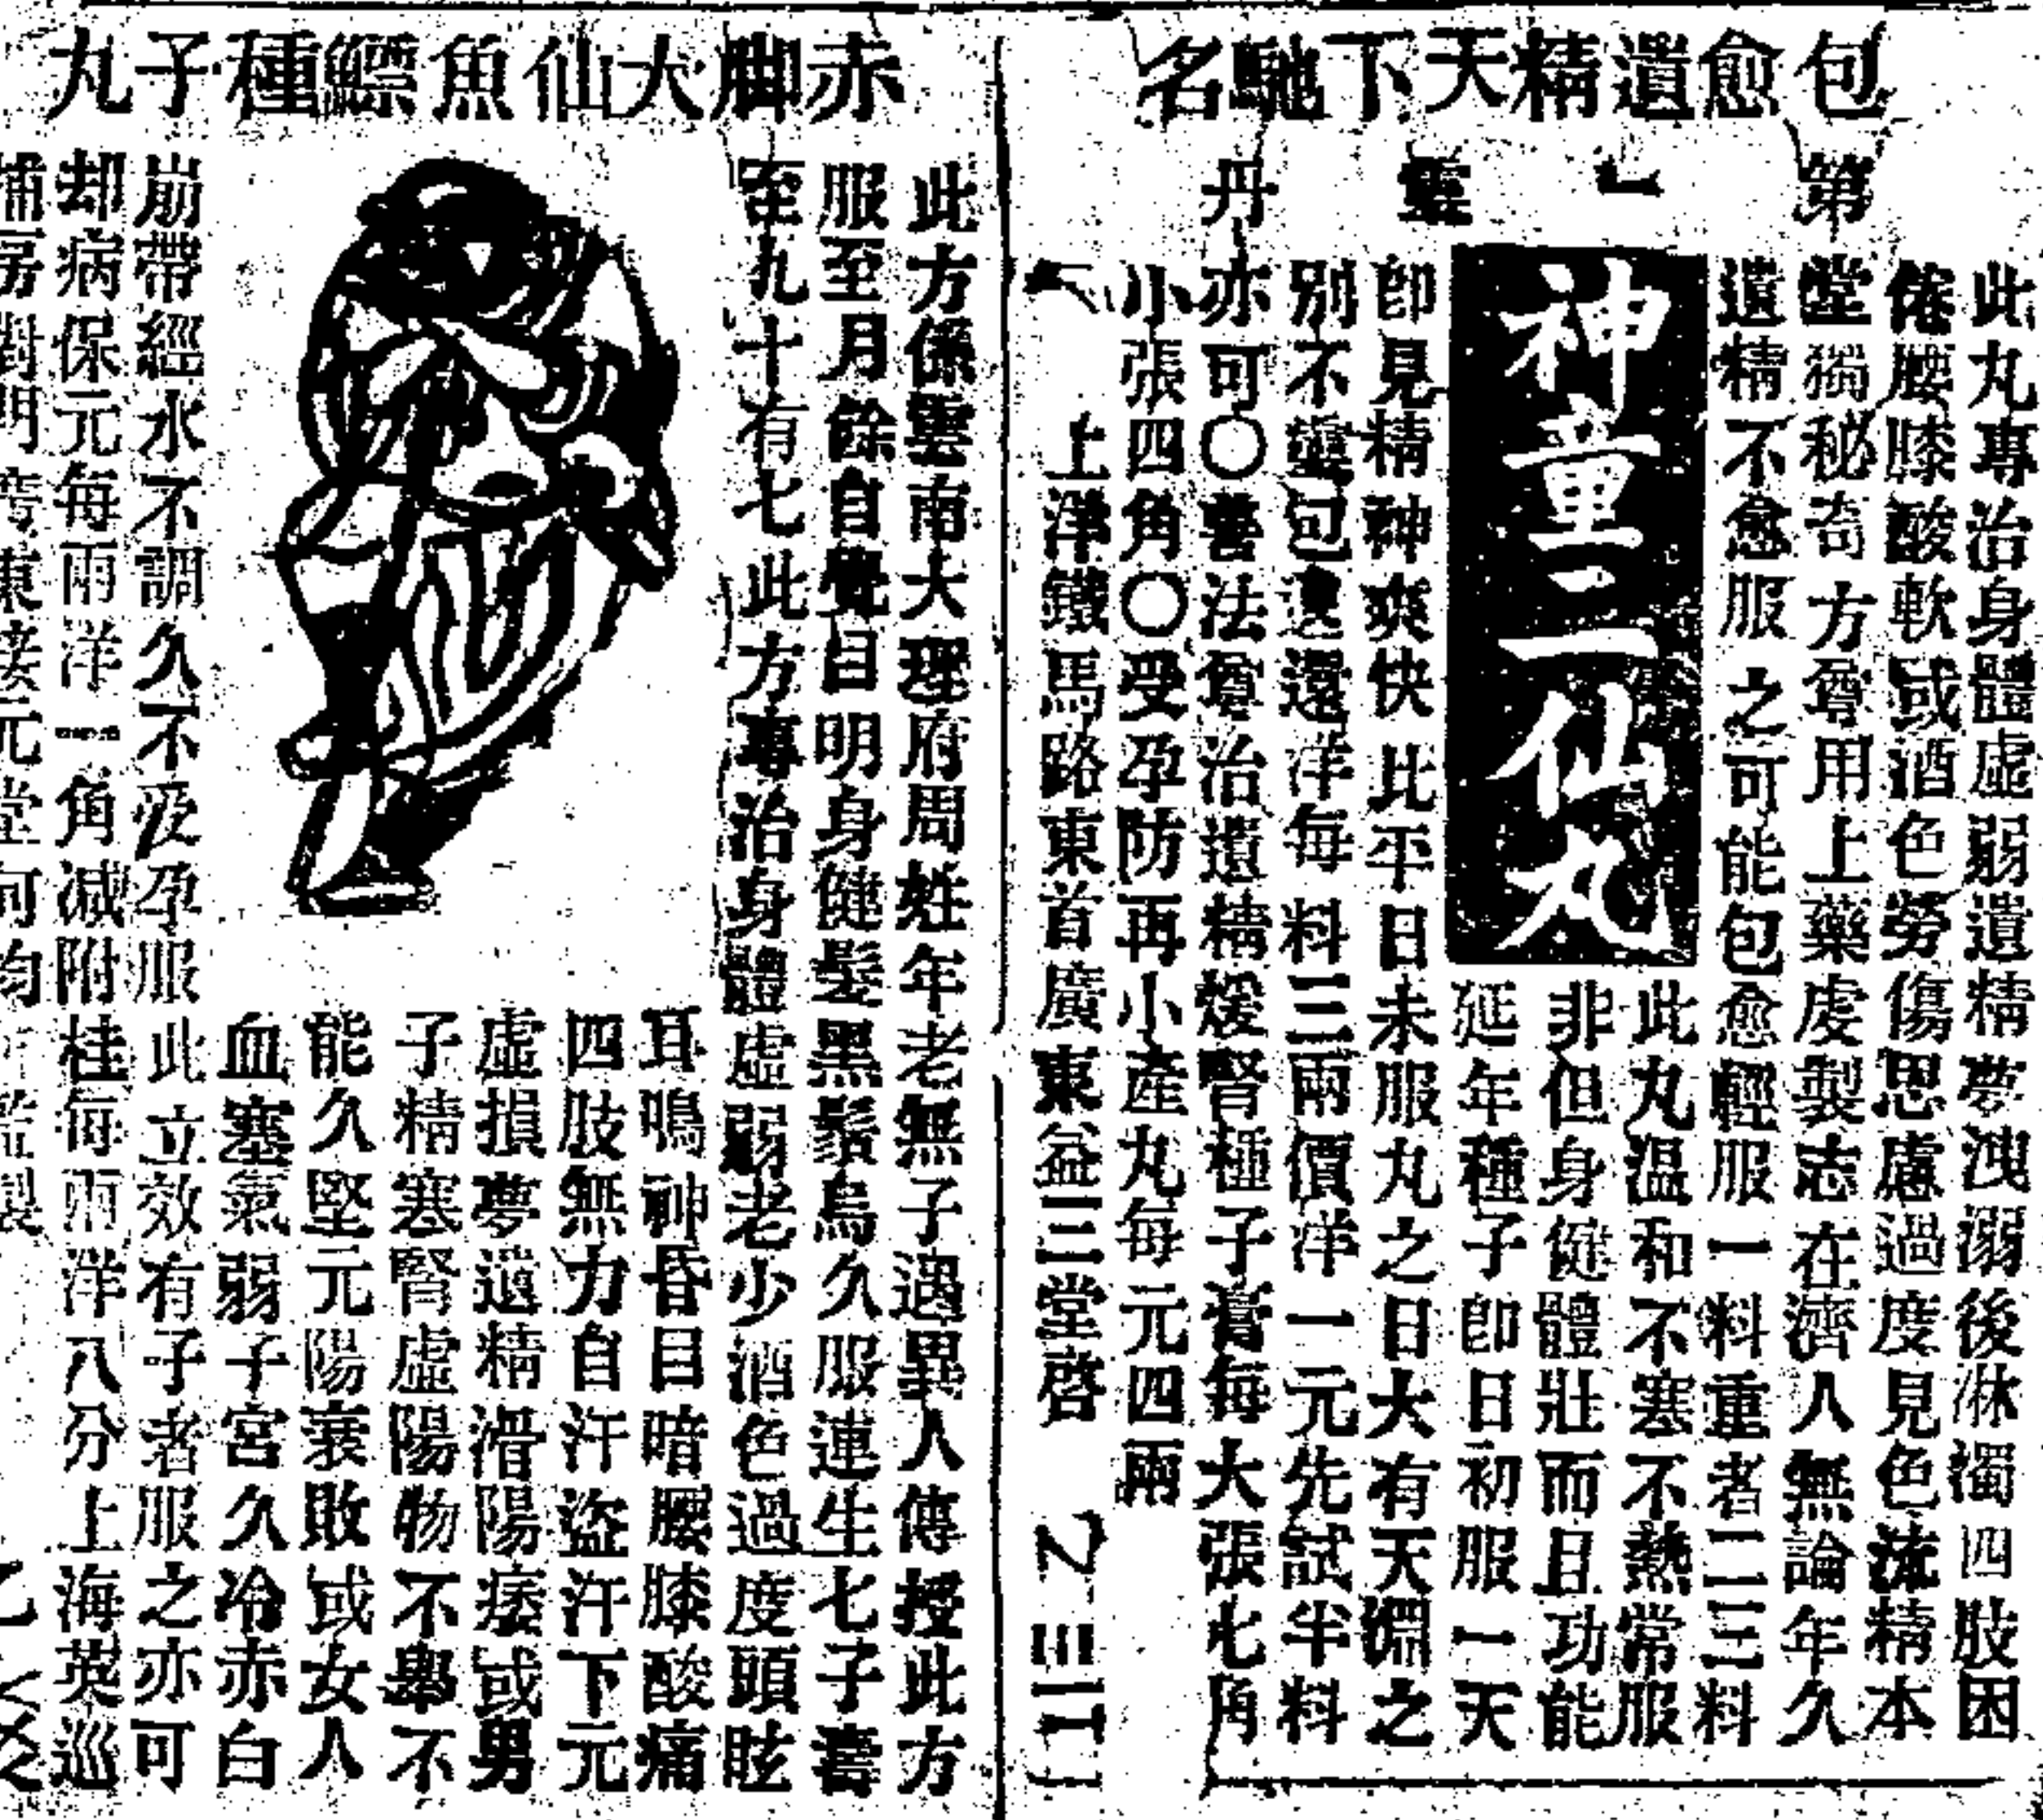 包愈遺精天下馳名
第一靈丹
此丸專治身體虛弱遺精夢洩溺後淋濁四肢困
倦腰膝酸軟或酒色勞傷思慮過度見色流精本
堂獨秘奇方膏用上藥虔製志在濟人無論年久
遺精不愈服之可能包愈輕服一料重者二三料
神童二仙丸
此丸温和不塞不熱常服
非但身健體壯而且功能
延年種子卽日初服一天
卽見精神爽快比平日未服丸之日大有天淵之
別不靈包退還洋每料三兩價洋一元先試半料
亦可〇善法膏治遺精煖腎種子膏每大張七角
小張四角〇受孕防再小產丸每元四兩
上洋鐵馬路東首廣東益三堂啓
赤脚大仙魚鰾種子丸
此方係雲南大理府周姓年老無子遇異人傳授此方
服至月餘自覺目明身健髮黑鬚烏久服連生七子壽
至九十有七此方專治身體虛弱老少酒色過度頭眩
耳鳴神昏目暗腰膝酸痛
四肢無力自汗盜汗下元
虛損夢遺精滑陽痿或男
子精寒腎虛陽物不舉不
能久堅元陽衰敗或女人
血塞氣弱子宮久冷赤白
崩帶經水不調久不受孕服此立效有子者服之亦可
却病保元每兩洋一角減附桂每兩洋八分上海英巡
捕房對門